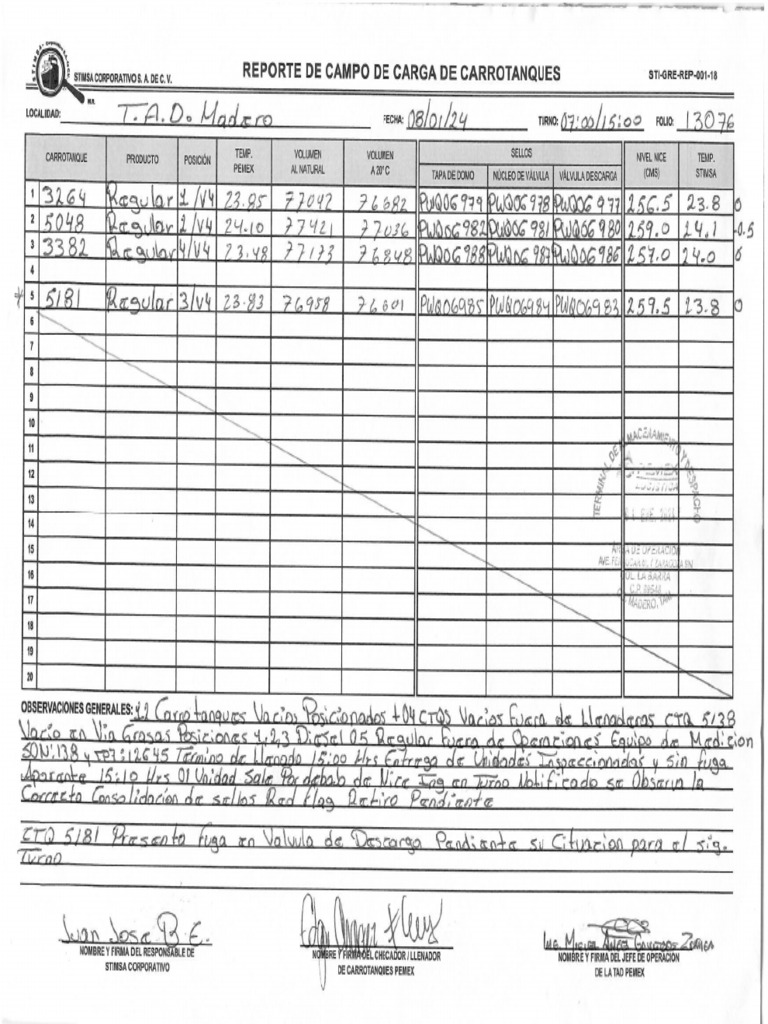 STIMSA CORPORATIVO S. A. DE C. V.
REPORTE DE CAMPO DE CARGA DE CARROTANQUES
STI-GRE-REP-001-18
LOCALIDAD: T.A.D. Madero FECHA: 08/01/24 TIRNO: 07:00/15:00 FOLIO: 13076
CARROTANQUE PRODUCTO POSICIÓN TEMP. PEMEX VOLUMEN AL NATURAL VOLUMEN A 20° C SELLOS TAPA DE DOMO NÚCLEO DE VÁLVULA VÁLVULA DESCARGA NIVEL NICE (CMS) TEMP. STIMSA
1 3264 Regular 1/V4 23.85 77042 76682 PWQ06979 PWQ06978 PWQ06977 256.5 23.8 0
2 5048 Regular 2/V4 24.10 77421 77036 PWQ06982 PWQ06981 PWQ06980 259.0 24.1 -0.5
3 3382 Regular 4/V4 23.48 77173 76848 PWQ06988 PWQ06987 PWQ06986 257.0 24.0
4
* 5 5181 Regular 3/V4 23.83 76958 76601 PWQ06985 PWQ06984 PWQ06983 259.5 23.8 0
6
7
8
9
10
11
12
13
14
15
16
17
18
19
20
TERMINAL DE ALMACENAMIENTO Y DESPACHO
PEMEX
LOGISTICA
ENE.
ÁREA DE OPERACIÓN
LA BARRA
C.P.
MADERO, TAM.
OBSERVACIONES GENERALES: 12 Carrotanques Vacios Posicionados +04 CTQS Vacios Fuera de Llenaderas CTQ 5138
Vacio en Via Grasas Posiciones 4,2,3 Diesel 05 Regular Fuera de Operaciones Equipo de Medicion
SON:138 y TP3:12645 Termino de Llenado 15:00 Hrs Entrega de Unidades Inspeccionadas y Sin fuga
Aparente 15:10 Hrs 01 Unidad Sale Por debab de Nice Ing en Turno Notificado se Observa la
Correcta Consolidación de sellos Red flag Retiro Pendiente
CTQ 5181 Presenta fuga en Valvula de Descarga Pendiente su Cituacion para el sig.
Turno
Juan Jose B. E.
NOMBRE Y FIRMA DEL RESPONSABLE DE
STIMSA CORPORATIVO
NOMBRE Y FIRMA DEL CHECADOR / LLENADOR
DE CARROTANQUES PEMEX
Ing. Miguel
NOMBRE Y FIRMA DEL JEFE DE OPERACIÓN
DE LA TAD PEMEX